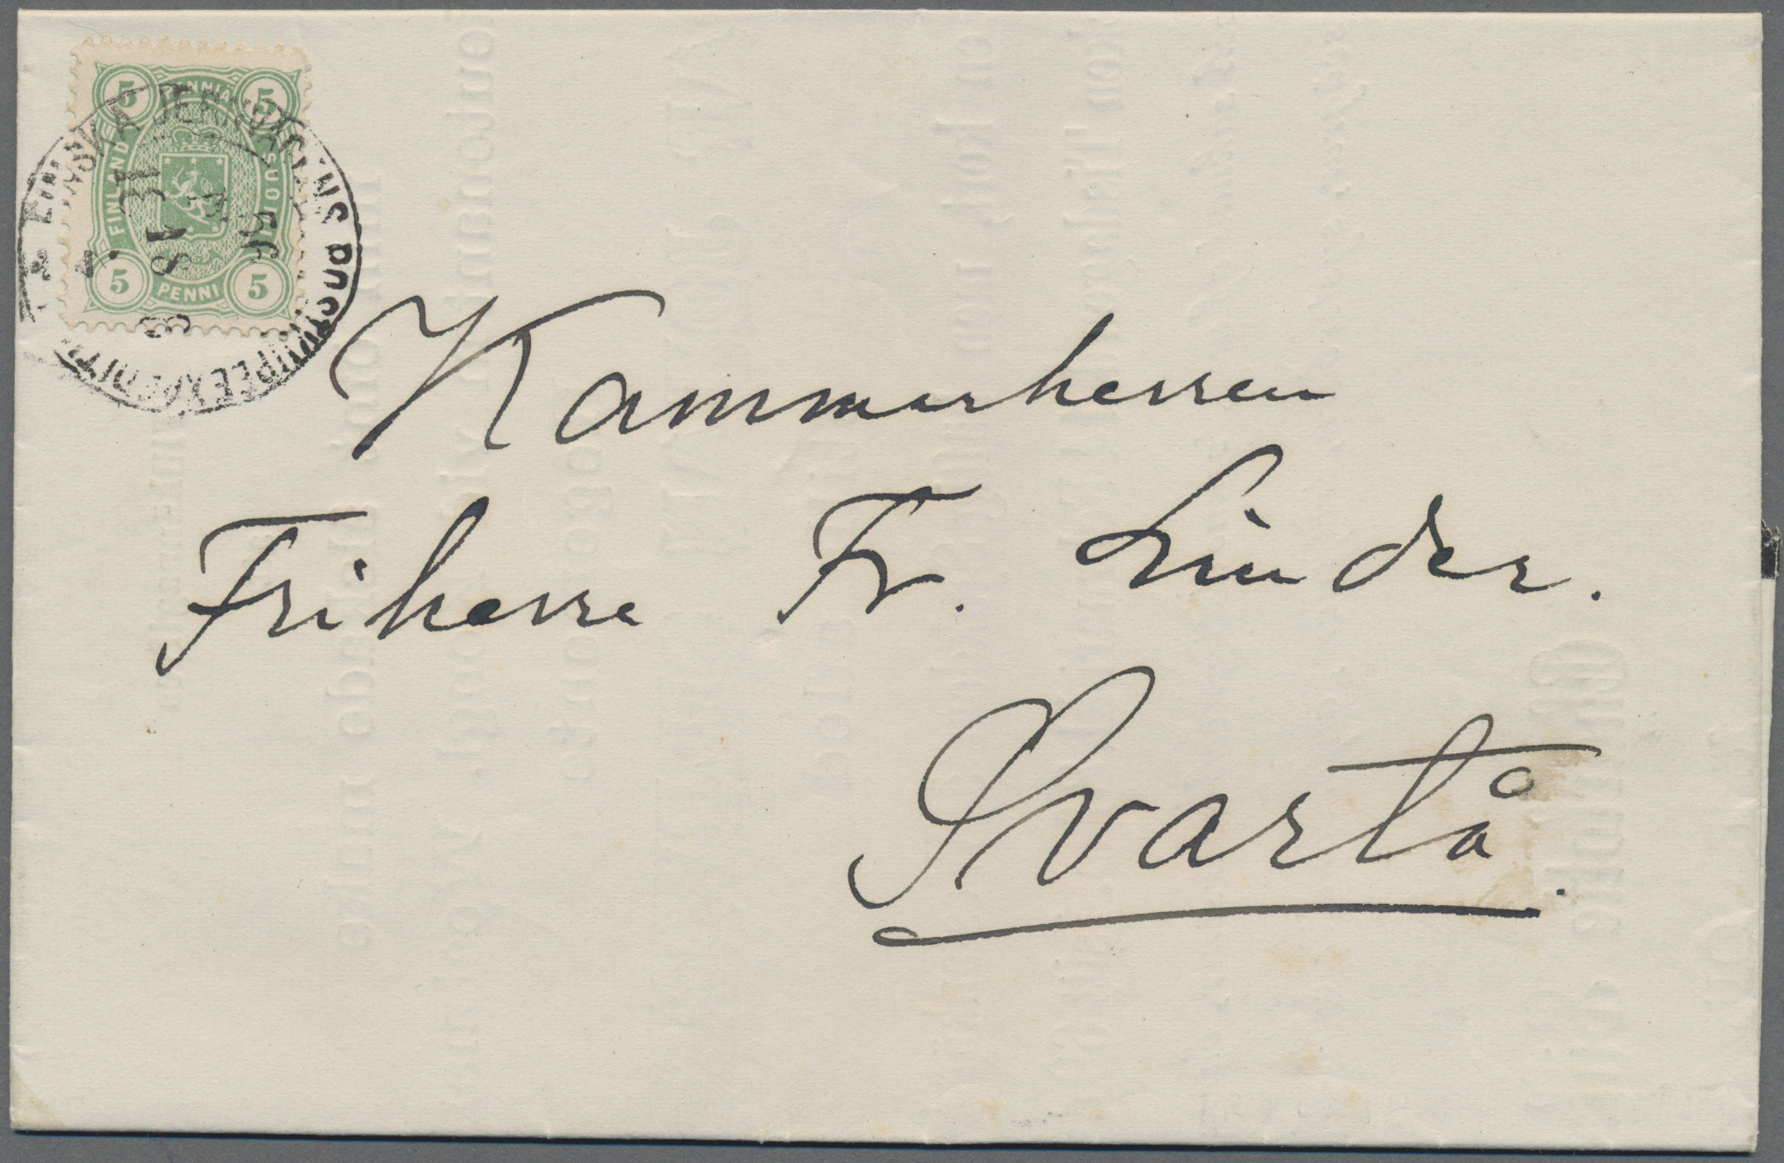 5 PENNIÄ 5
FINLAND
SUOMI
5 PENNI 5
FINSKA JERNVÄGENS POSTKUPÉEXPEDITION
Kammarherren
Friherre Fr. Linder.
Svartå.